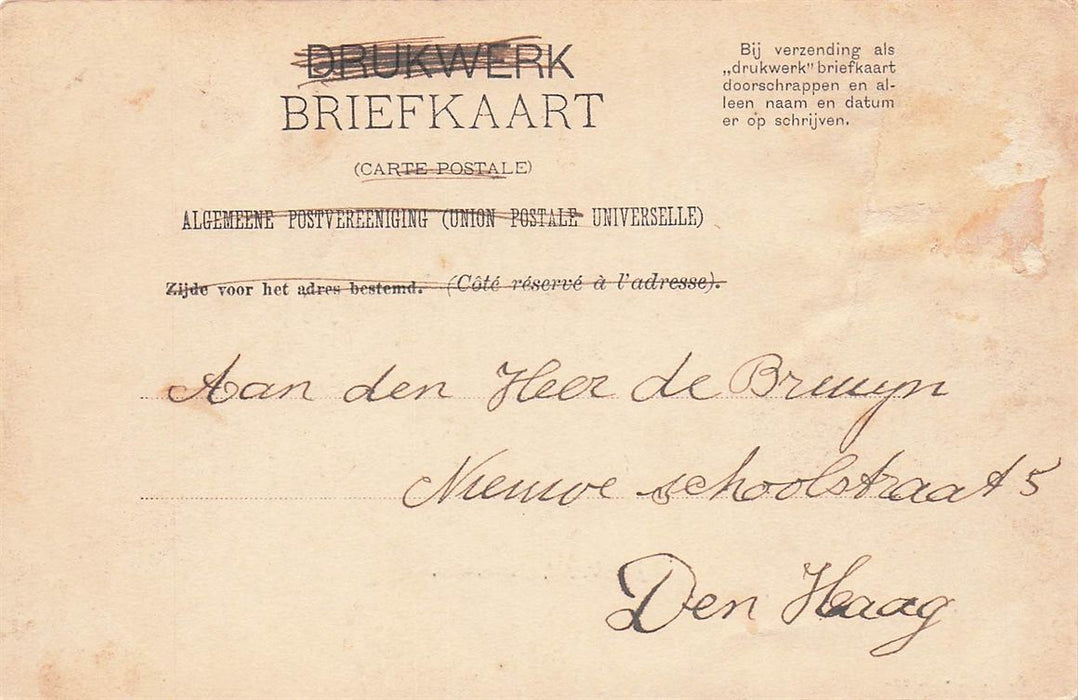 DRUKWERK
BRIEFKAART
(CARTE POSTALE)
ALGEMEENE POSTVEREENIGING (UNION POSTALE UNIVERSELLE)
Zijde voor het adres bestemd. (Côté réservé à l'adresse).
Bij verzending als
„drukwerk" briefkaart
doorschrappen en al-
leen naam en datum
er op schrijven.
Aan den Heer de Bruuyn
Nieuwe schoolstraat 5
Den Haag